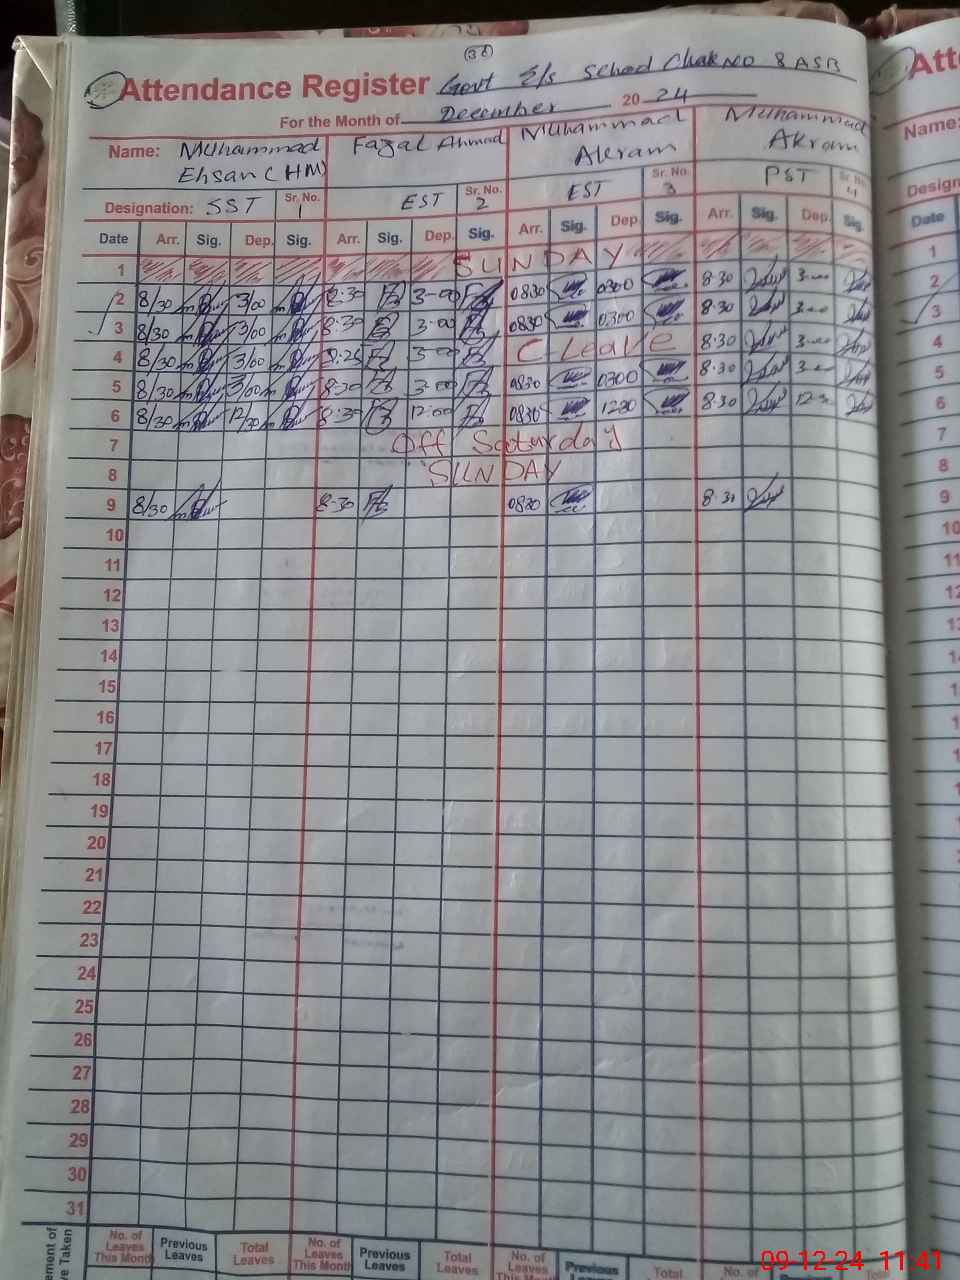 38
Attendance Register Govt E/s School Chak NO 8 ASB
For the Month of December 2024
Name: Muhammad Ehsan (HM) Fazal Ahmad Muhammad Akram Muhammad Akram
Designation: SST Sr. No. 1 EST Sr. No. 2 EST Sr. No. 3 PST Sr. No. 4
Date Arr. Sig. Dep. Sig. Arr. Sig. Dep. Sig. Arr. Sig. Dep. Sig. Arr. Sig. Dep. Sig.
1 SUNDAY
2 8/30 3/00 8:30 3-00 0830 0300 8.30 3.00
3 8/30 3/00 8:30 3.00 0830 0300 8.30 3.00
4 8/30 3/00 8:25 3-00 C-Leave 8.30 3.00
5 8/30 3/00 8:30 3.00 0830 0300 8.30 3.00
6 8/30 12/30 8:30 12:00 0830 1230 8.30
7 Off Saturday
8 SUNDAY
9 8/30 8:30 0830 8.30
10
11
12
13
14
15
16
17
18
19
20
21
22
23
24
25
26
27
28
29
30
31
No. of Leaves This Month Previous Leaves Total Leaves No. of Leaves This Month Previous Leaves Total Leaves No. of Previous Leaves Total No. of
Att
Name:
Design
Date
1
2
3
4
5
6
7
8
9
10
09-12-24 11:41